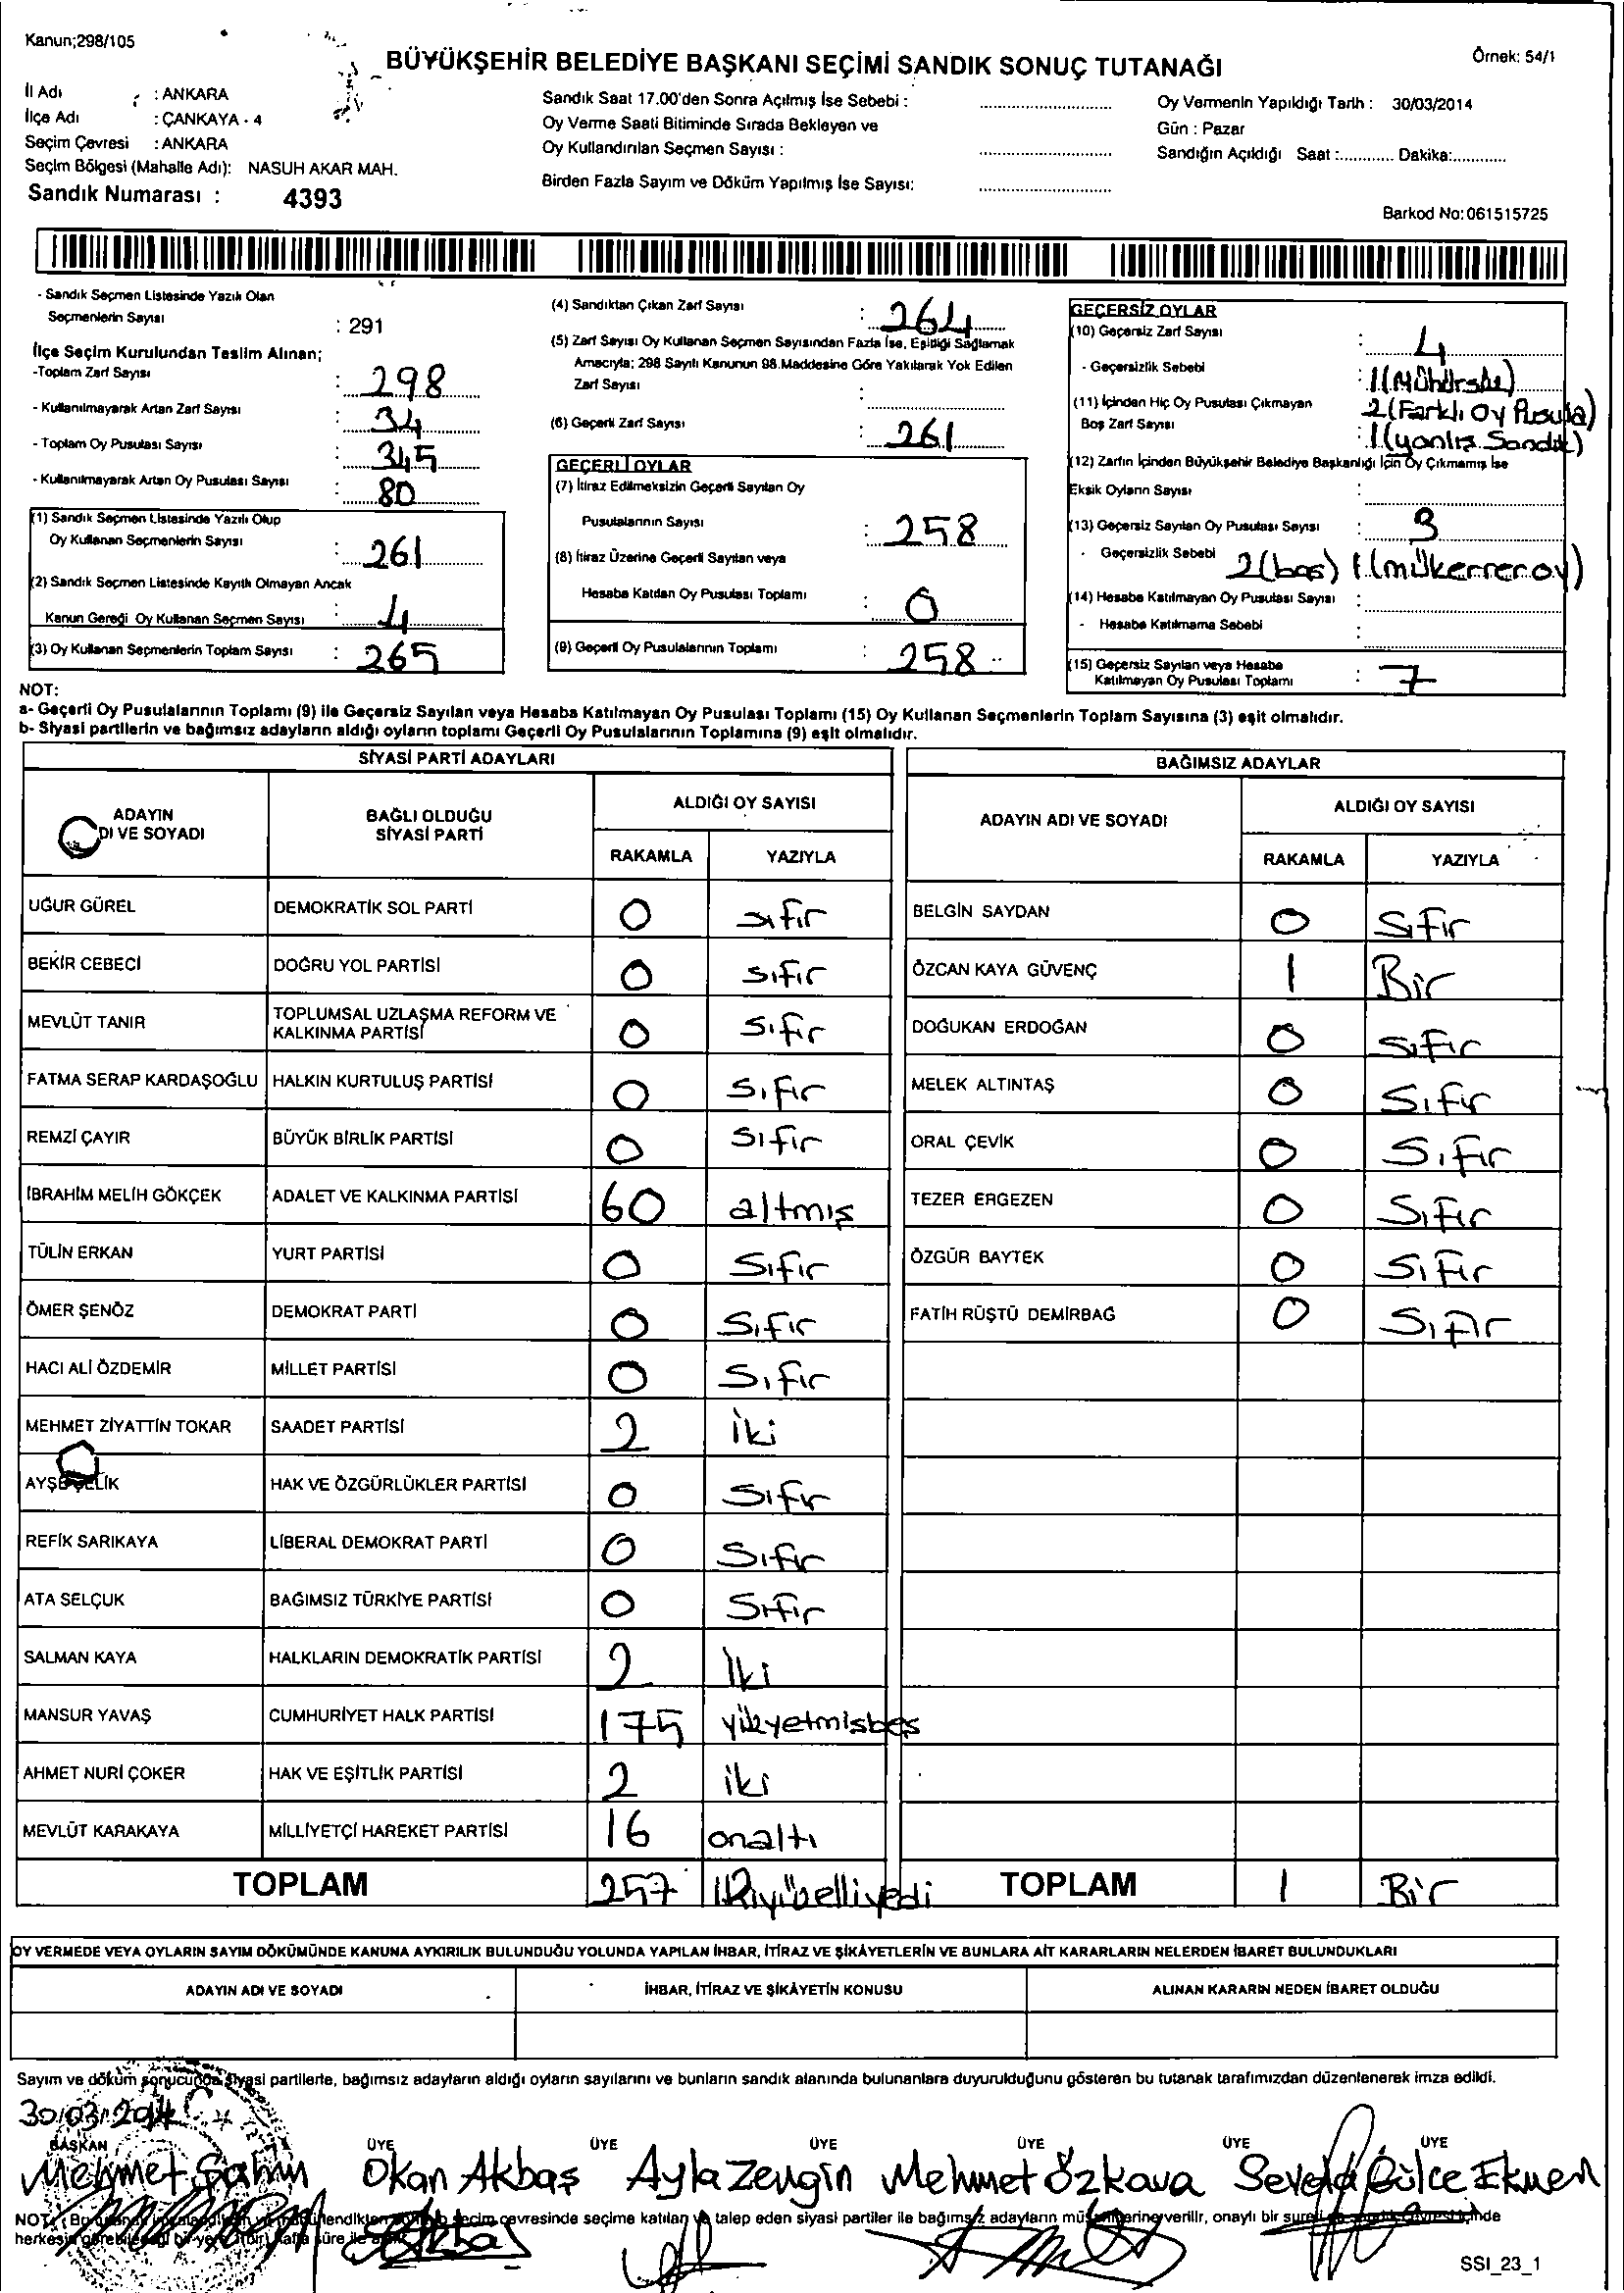 Kanun;298/105
BÜYÜKŞEHİR BELEDİYE BAŞKANI SEÇİMİ SANDIK SONUÇ TUTANAĞI
Örnek: 54/1
İl Adı : ANKARA
İlçe Adı : ÇANKAYA - 4
Seçim Çevresi : ANKARA
Seçim Bölgesi (Mahalle Adı): NASUH AKAR MAH.
Sandık Numarası : 4393
Sandık Saat 17.00'den Sonra Açılmış İse Sebebi :
Oy Verme Saati Bitiminde Sırada Bekleyen ve
Oy Kullandırılan Seçmen Sayısı :
Birden Fazla Sayım ve Döküm Yapılmış İse Sayısı:
Oy Vermenin Yapıldığı Tarih : 30/03/2014
Gün : Pazar
Sandığın Açıldığı Saat :............ Dakika:............
Barkod No:061515725
- Sandık Seçmen Listesinde Yazılı Olan
Seçmenlerin Sayısı : 291
İlçe Seçim Kurulundan Teslim Alınan;
-Toplam Zarf Sayısı : 298
- Kullanılmayarak Artan Zarf Sayısı : 34
- Toplam Oy Pusulası Sayısı : 345
- Kullanılmayarak Artan Oy Pusulası Sayısı : 80
(1) Sandık Seçmen Listesinde Yazılı Olup
Oy Kullanan Seçmenlerin Sayısı : 261
(2) Sandık Seçmen Listesinde Kayıtlı Olmayan Ancak
Kanun Gereği Oy Kullanan Seçmen Sayısı : 4
(3) Oy Kullanan Seçmenlerin Toplam Sayısı : 265
(4) Sandıktan Çıkan Zarf Sayısı : 264
(5) Zarf Sayısı Oy Kullanan Seçmen Sayısından Fazla İse, Eşitliği Sağlamak
Amacıyla; 298 Sayılı Kanunun 98.Maddesine Göre Yakılarak Yok Edilen
Zarf Sayısı :
(6) Geçerli Zarf Sayısı : 261
GEÇERLİ OYLAR
(7) İtiraz Edilmeksizin Geçerli Sayılan Oy
Pusulalarının Sayısı : 258
(8) İtiraz Üzerine Geçerli Sayılan veya
Hesaba Katılan Oy Pusulası Toplamı : 0
(9) Geçerli Oy Pusulalarının Toplamı : 258
GEÇERSİZ OYLAR
(10) Geçersiz Zarf Sayısı : 4
- Geçersizlik Sebebi : 1(Mühürsüz)
(11) İçinden Hiç Oy Pusulası Çıkmayan 2(Farklı Oy Pusula)
Boş Zarf Sayısı : 1(yanlış Sandık)
(12) Zarfın İçinden Büyükşehir Belediye Başkanlığı İçin Oy Çıkmamış İse
Eksik Oyların Sayısı :
(13) Geçersiz Sayılan Oy Pusulası Sayısı : 3
- Geçersizlik Sebebi 2(boş) 1(mükerrer oy)
(14) Hesaba Katılmayan Oy Pusulası Sayısı :
- Hesaba Katılmama Sebebi :
(15) Geçersiz Sayılan veya Hesaba
Katılmayan Oy Pusulası Toplamı : 7
NOT:
a- Geçerli Oy Pusulalarının Toplamı (9) ile Geçersiz Sayılan veya Hesaba Katılmayan Oy Pusulası Toplamı (15) Oy Kullanan Seçmenlerin Toplam Sayısına (3) eşit olmalıdır.
b- Siyasi partilerin ve bağımsız adayların aldığı oyların toplamı Geçerli Oy Pusulalarının Toplamına (9) eşit olmalıdır.
SİYASİ PARTİ ADAYLARI
ADAYIN
DI VE SOYADI
BAĞLI OLDUĞU
SİYASİ PARTİ
ALDIĞI OY SAYISI
RAKAMLA YAZIYLA
UĞUR GÜREL DEMOKRATİK SOL PARTİ 0 sıfır
BEKİR CEBECİ DOĞRU YOL PARTİSİ 0 sıfır
MEVLÜT TANIR TOPLUMSAL UZLAŞMA REFORM VE
KALKINMA PARTİSİ 0 sıfır
FATMA SERAP KARDAŞOĞLU HALKIN KURTULUŞ PARTİSİ 0 sıfır
REMZİ ÇAYIR BÜYÜK BİRLİK PARTİSİ 0 sıfır
İBRAHİM MELİH GÖKÇEK ADALET VE KALKINMA PARTİSİ 60 altmış
TÜLİN ERKAN YURT PARTİSİ 0 Sıfır
ÖMER ŞENÖZ DEMOKRAT PARTİ 0 Sıfır
HACI ALİ ÖZDEMİR MİLLET PARTİSİ 0 Sıfır
MEHMET ZİYATTİN TOKAR SAADET PARTİSİ 2 iki
AYŞE ÇELİK HAK VE ÖZGÜRLÜKLER PARTİSİ 0 Sıfır
REFİK SARIKAYA LİBERAL DEMOKRAT PARTİ 0 Sıfır
ATA SELÇUK BAĞIMSIZ TÜRKİYE PARTİSİ 0 Sıfır
SALMAN KAYA HALKLARIN DEMOKRATİK PARTİSİ 2 İki
MANSUR YAVAŞ CUMHURİYET HALK PARTİSİ 175 yüzyetmişbeş
AHMET NURİ ÇOKER HAK VE EŞİTLİK PARTİSİ 2 iki
MEVLÜT KARAKAYA MİLLİYETÇİ HAREKET PARTİSİ 16 onaltı
TOPLAM 257 İkiyüzelliyedi
BAĞIMSIZ ADAYLAR
ADAYIN ADI VE SOYADI
ALDIĞI OY SAYISI
RAKAMLA YAZIYLA
BELGİN SAYDAN 0 Sıfır
ÖZCAN KAYA GÜVENÇ 1 Bir
DOĞUKAN ERDOĞAN 0 Sıfır
MELEK ALTINTAŞ 0 Sıfır
ORAL ÇEVİK 0 Sıfır
TEZER ERGEZEN 0 Sıfır
ÖZGÜR BAYTEK 0 Sıfır
FATİH RÜŞTÜ DEMİRBAĞ 0 Sıfır
TOPLAM 1 Bir
OY VERMEDE VEYA OYLARIN SAYIM DÖKÜMÜNDE KANUNA AYKIRILIK BULUNDUĞU YOLUNDA YAPILAN İHBAR, İTİRAZ VE ŞİKÂYETLERİN VE BUNLARA AİT KARARLARIN NELERDEN İBARET BULUNDUKLARI
ADAYIN ADI VE SOYADI İHBAR, İTİRAZ VE ŞİKÂYETİN KONUSU ALINAN KARARIN NEDEN İBARET OLDUĞU
Sayım ve döküm sonucunda siyasi partilerle, bağımsız adayların aldığı oyların sayılarını ve bunların sandık alanında bulunanlara duyurulduğunu gösteren bu tutanak tarafımızdan düzenlenerek imza edildi.
30/03/2014
BAŞKAN ÜYE ÜYE ÜYE ÜYE ÜYE ÜYE
Mehmet Şahin Okan Akbaş Ayla Zengin Mehmet Özkava Sevda Gülce Ekmen
NOT: seçim çevresinde seçime katılan ve talep eden siyasi partiler ile bağımsız adayların müşahitlerine verilir, onaylı bir
SSI_23_1